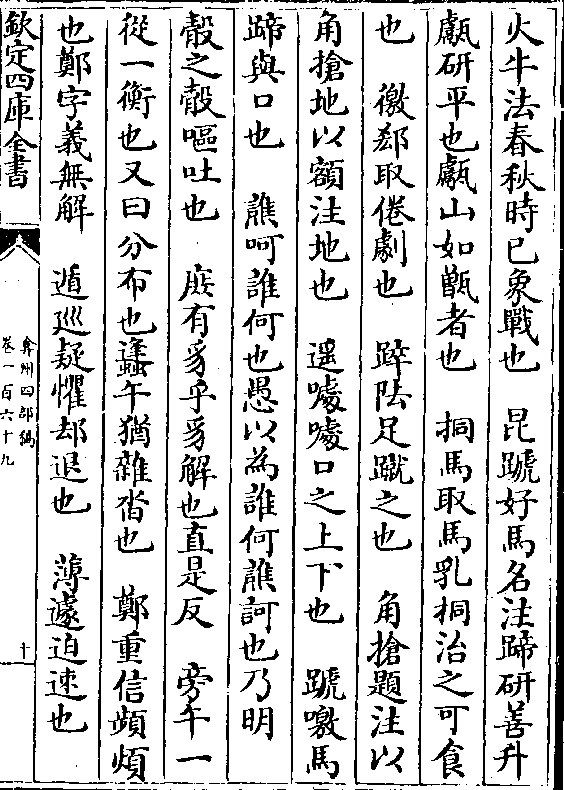 火牛法春秋時已象戰也　昆蹏好馬名注蹄研善升
甗研平也甗山如甑者也　挏馬取馬乳挏治之可食
也　徼郄取倦劇也　踤阹足蹴之也　角搶題注以
角搶地以額注地也　遥噱噱口之上下也　蹏噭馬
蹄與口也　譙呵誰何也愚以為誰何譙訶也乃明
㱿之㱿嘔吐也　㢋有豸乎豸解也直是反　旁午一
從一衡也又曰分布也蠭午猶雜沓也　鄭重信頻煩
也鄭字義無解　遁廵疑懼却退也　薄遽迫速也
欽定四庫全書
弇州四部稿
卷一百六十九
十